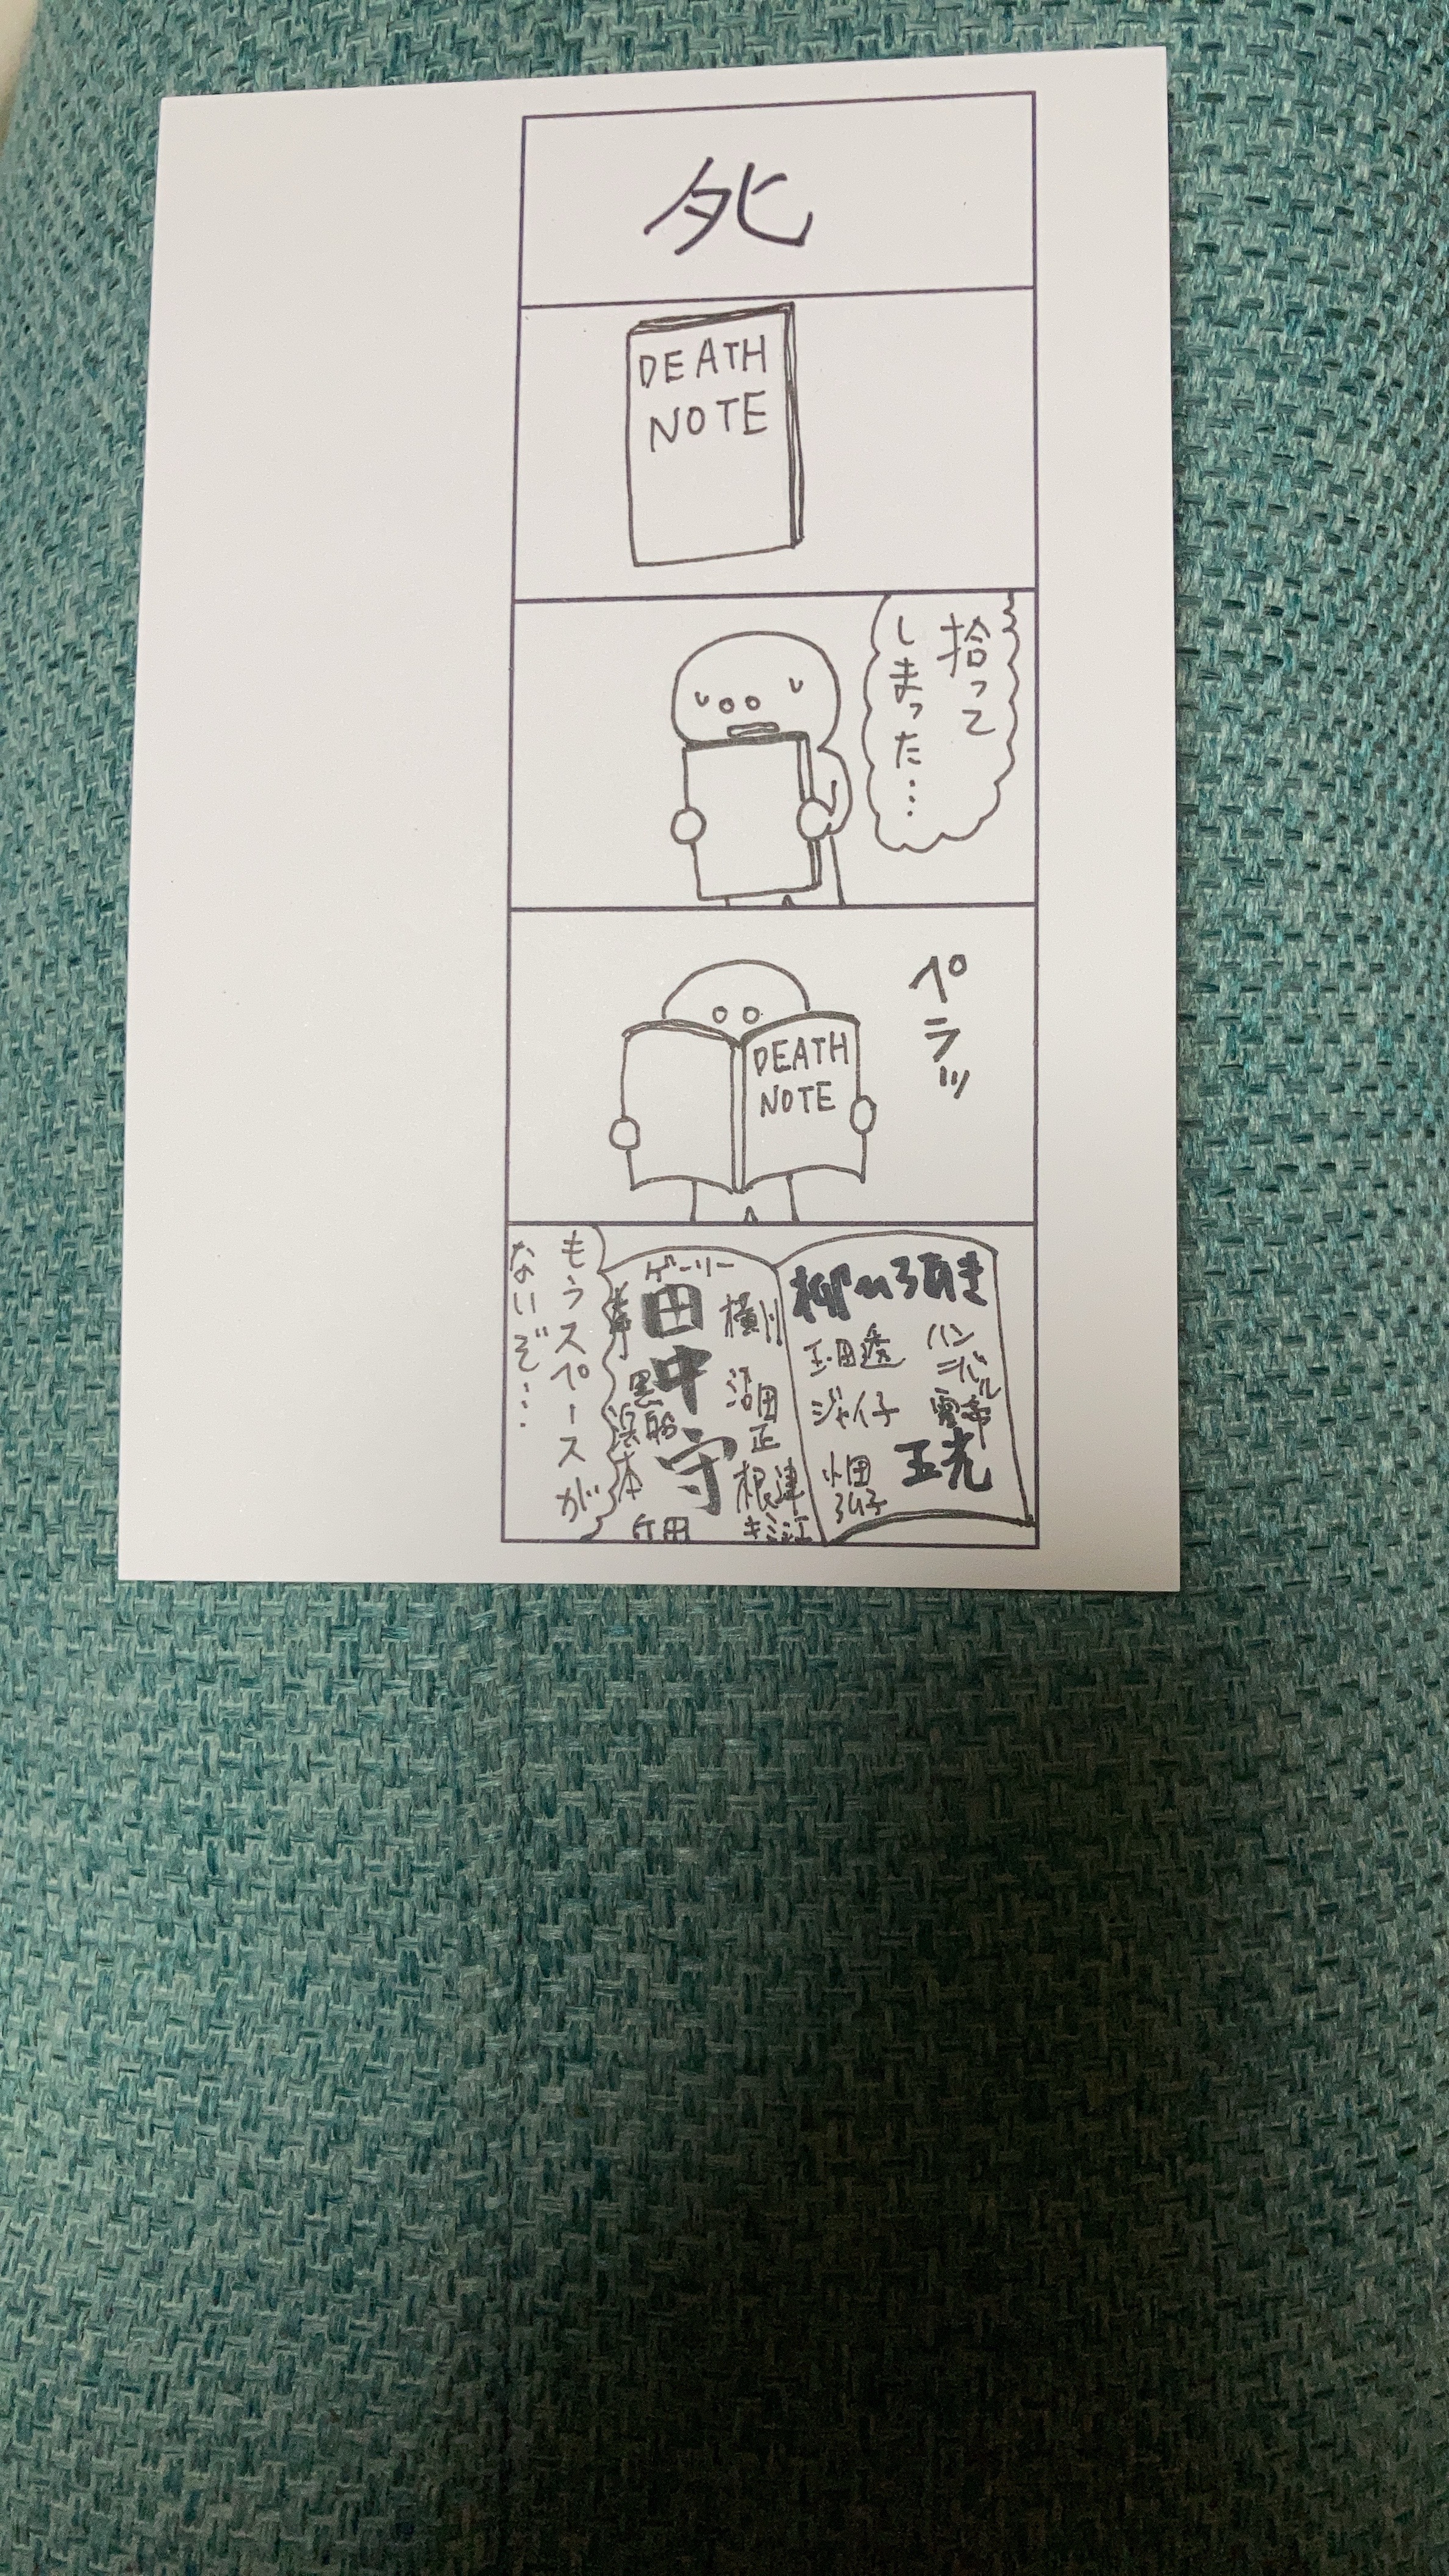 死
DEATH
NOTE
拾って
しまった…
ペラッ
DEATH
NOTE
柳ひろあき
ハンニバル
玉田透
ジャイ子
玉光
畑田
ゲーリー
横川
田中守
沼田正
根津
キミ江
黒船
浜本
竹田
もうスペースが
ないぞ…